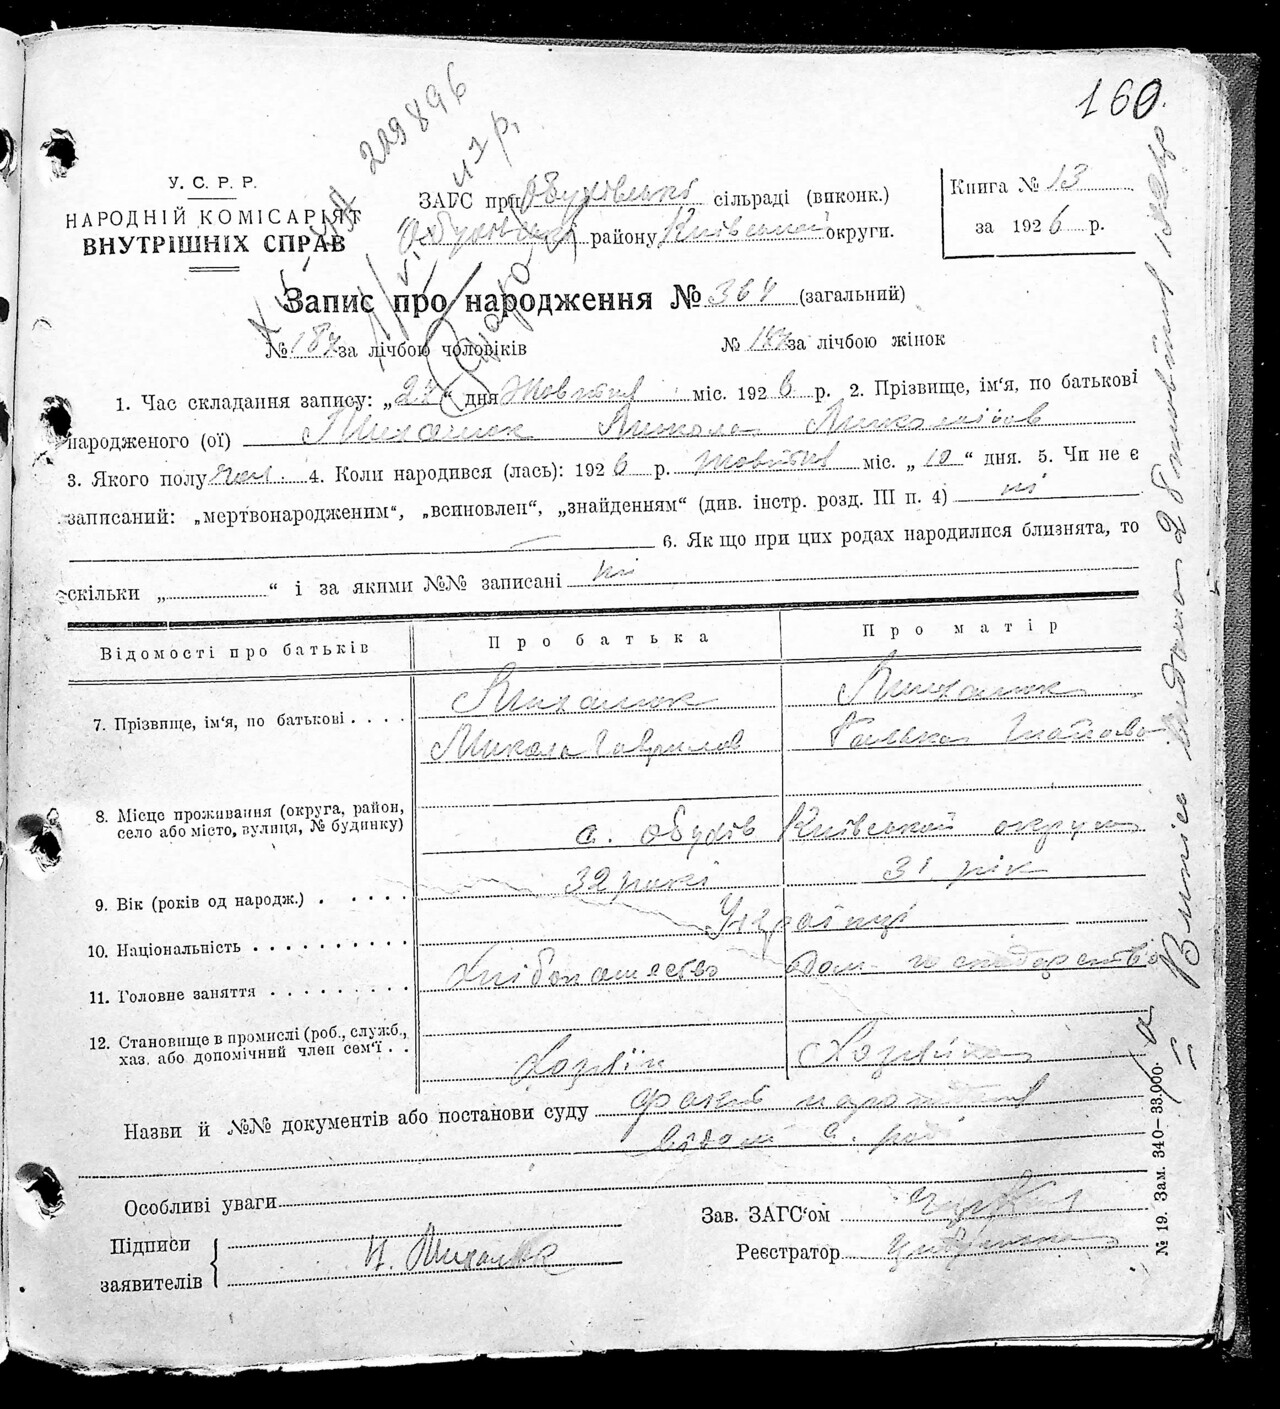 160
209896
У. С. Р. Р.
НАРОДНІЙ КОМІСАРІЯТ
ВНУТРІШНІХ СПРАВ
ЗАГС при Обухівські сільраді (виконк.)
Обухівськ району Київської округи.
Книга № 13
за 1926 р.
Запис про народження № 364 (загальний)
№ 187 за лічбою чоловіків
№ за лічбою жінок
1. Час складання запису: „27“ дня Жовтня міс. 1926 р. 2. Прізвище, ім'я, по батькові
народженого (ої) Михалюк Микола Миколаїов
3. Якого полу чол. 4. Коли народився (лась): 1926 р. Жовтня міс. „10“ дня. 5. Чи не є
записаний: „мертвонародженим“, „всиновлен“, „знайденням“ (див. інстр. розд. III п. 4) ні
6. Якщо при цих родах народилися близнята, то
скільки „ “ і за якими №№ записані ні
Відомості про батьків
Про батька
Про матір
7. Прізвище, ім'я, по батькові
Михалюк
Михалюк
Микола Гаврилов
Галька Гнатова
8. Місце проживання (округа, район,
село або місто, вулиця, № будинку)
с. Обухів Київської округи
9. Вік (років од народж.)
32 роки
31 рік
10. Національність
Українці
11. Головне заняття
Хліборобство
дом. господарство
12. Становище в промислі (роб., служб.,
хаз. або допомічний член сем'ї
Хазяїн
Хазяйка
Назви й №№ документів або постанови суду факт народження
відомі с. раді
Особливі уваги
Підписи
заявителів
Н. Михалюк
Зав. ЗАГС'ом
Реєстратор
№ 19. Зам. 340—33.000.
Виписъ видана 28